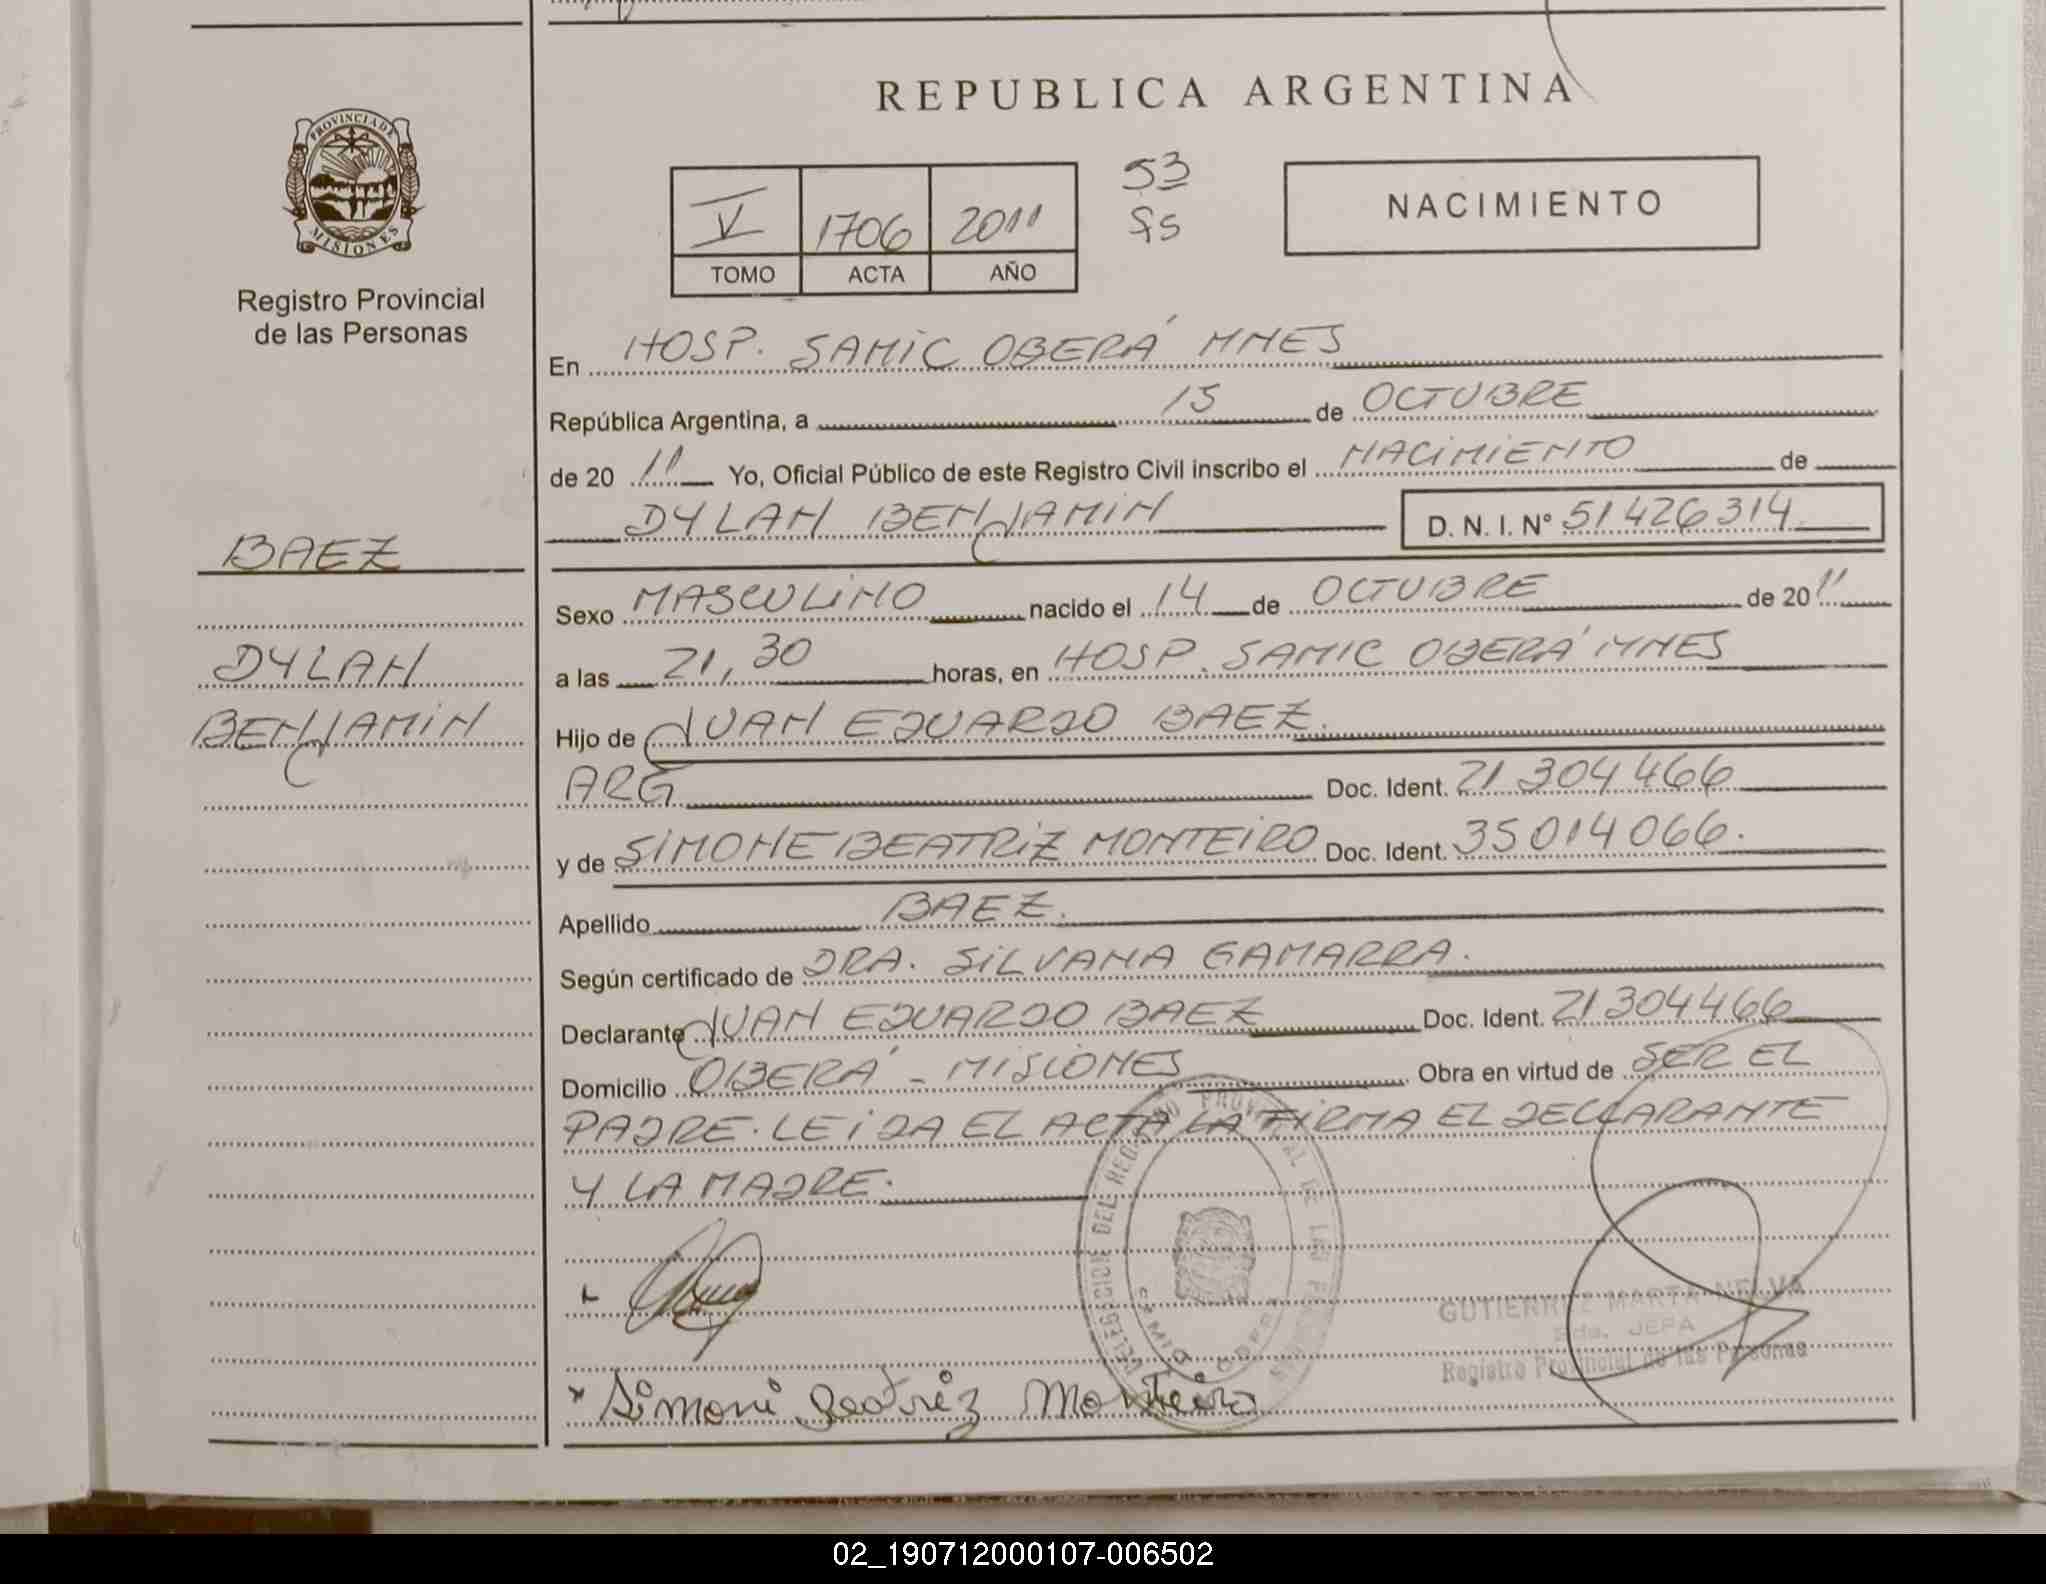 REPUBLICA ARGENTINA
PROVINCIA DE
MISIONES
Registro Provincial
de las Personas
V 1706 2011
TOMO ACTA AÑO
53
fs
NACIMIENTO
En HOSP. SAMIC OBERÁ MNES
República Argentina, a 15 de OCTUBRE
de 20 11 Yo, Oficial Público de este Registro Civil inscribo el NACIMIENTO de
DYLAN BENJAMIN D. N. I. N° 51426314
BAEZ
DYLAN
BENJAMIN
Sexo MASCULINO nacido el 14 de OCTUBRE de 20 11
a las 21,30 horas, en HOSP. SAMIC OBERÁ MNES
Hijo de JUAN EDUARDO BAEZ.
ARG Doc. Ident. 21304466
y de SIMONE BEATRIZ MONTEIRO Doc. Ident. 35014066.
Apellido BAEZ.
Según certificado de DRA. SILVANA GAMARRA.
Declarante JUAN EDUARDO BAEZ Doc. Ident. 21304466
Domicilio OBERÁ - MISIONES Obra en virtud de SER EL
PADRE. LEIDA EL ACTA LA FIRMA EL DECLARANTE
Y LA MADRE.
DELEGACION DEL REGISTRO PROVINCIAL DE LAS PERSONAS
GUTIERREZ MARTA NELVA
JEFA
Registro Provincial de las Personas
Simoni Beatriz Monteiro
02_190712000107-006502